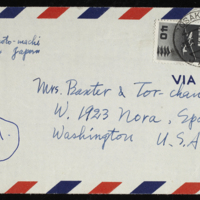 oto-machi
Japan
40
VIA
Mrs. Baxter & Tor-chan
W. 1923 Nora, Spo
Washington
U.S.A